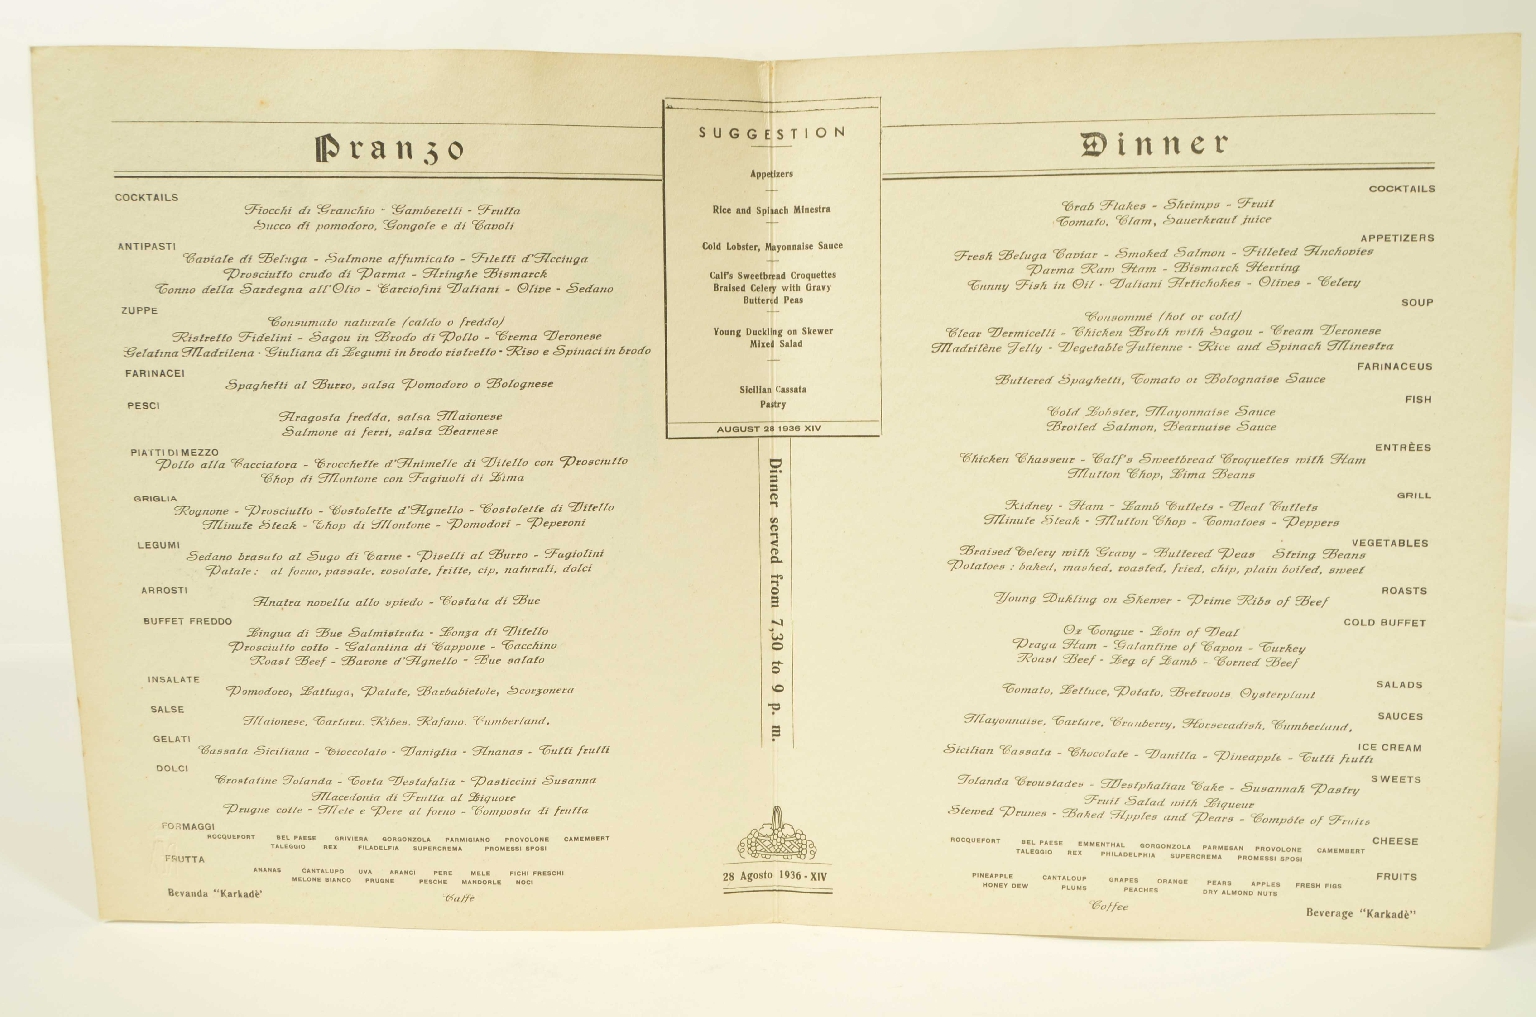 Pranzo
COCKTAILS
Fiocchi di Granchio - Gamberetti - Frutta
Succo di pomodoro, Gongole e di Cavoli
ANTIPASTI
Caviale di Beluga - Salmone affumicato - Filetti d'Acciuga
Prosciutto crudo di Parma - Aringhe Bismarck
Tonno della Sardegna all'Olio - Carciofini Valiani - Olive - Sedano
ZUPPE
Consumato naturale (caldo o freddo)
Ristretto Fidelini - Sagou in Brodo di Pollo - Crema Veronese
Gelatina Madrilena - Giuliana di Legumi in brodo ristretto - Riso e Spinaci in brodo
FARINACEI
Spaghetti al Burro, salsa Pomodoro o Bolognese
PESCI
Aragosta fredda, salsa Maionese
Salmone ai ferri, salsa Bearnese
PIATTI DI MEZZO
Pollo alla Cacciatora - Crocchette d'Animelle di Vitello con Prosciutto
Chop di Montone con Fagiuoli di Lima
GRIGLIA
Rognone - Prosciutto - Costolette d'Agnello - Costolette di Vitello
Minute Steak - Chop di Montone - Pomodori - Peperoni
LEGUMI
Sedano brasato al Sugo di Carne - Piselli al Burro - Fagiolini
Patate : al forno, passate, rosolate, fritte, cip, naturali, dolci
ARROSTI
Anatra novella allo spiedo - Costata di Bue
BUFFET FREDDO
Lingua di Bue Salmistrata - Lonza di Vitello
Prosciutto cotto - Galantina di Cappone - Tacchino
Roast Beef - Barone d'Agnello - Bue salato
INSALATE
Pomodoro, Lattuga, Patate, Barbabietole, Scorzonera
SALSE
Maionese, Tartara, Ribes, Rafano, Cumberland,
GELATI
Cassata Siciliana - Cioccolato - Vaniglia - Ananas - Tutti frutti
DOLCI
Crostatine Jolanda - Torta Vestafalia - Pasticcini Susanna
Macedonia di Frutta al Liquore
Prugne cotte - Mele e Pere al forno - Composta di frutta
FORMAGGI
ROCQUEFORT BEL PAESE GRIVIERA GORGONZOLA PARMIGIANO PROVOLONE CAMEMBERT
TALEGGIO REX FILADELFIA SUPERCREMA PROMESSI SPOSI
FRUTTA
ANANAS CANTALUPO UVA ARANCI PERE MELE FICHI FRESCHI
MELONE BIANCO PRUGNE PESCHE MANDORLE NOCI
Bevanda "Karkadè'
Caffè
SUGGESTION
Appetizers
Rice and Spinach Minestra
Cold Lobster, Mayonnaise Sauce
Calf's Sweetbread Croquettes
Braised Celery with Gravy
Buttered Peas
Young Duckling on Skewer
Mixed Salad
Sicilian Cassata
Pastry
AUGUST 28 1936 XIV
Dinner served from 7,30 to 9 p. m.
28 Agosto 1936 - XIV
Dinner
COCKTAILS
Crab Flakes - Shrimps - Fruit
Tomato, Clam, Sauerkraut juice
APPETIZERS
Fresh Beluga Caviar - Smoked Salmon - Filleted Anchovies
Parma Raw Ham - Bismarck Herring
Tunny Fish in Oil - Valiani Artichokes - Olives - Celery
SOUP
Consommé (hot or cold)
Clear Vermicelli - Chicken Broth with Sagou - Cream Veronese
Madrilène Jelly - Vegetable Julienne - Rice and Spinach Minestra
FARINACEUS
Buttered Spaghetti, Tomato or Bolognaise Sauce
FISH
Cold Lobster, Mayonnaise Sauce
Broiled Salmon, Bearnaise Sauce
ENTRÈES
Chicken Chasseur - Calf's Sweetbread Croquettes with Ham
Mutton Chop, Lima Beans
GRILL
Kidney - Ham - Lamb Cutlets - Veal Cutlets
Minute Steak - Mutton Chop - Tomatoes - Peppers
VEGETABLES
Braised Celery with Gravy - Buttered Peas String Beans
Potatoes : baked, mashed, roasted, fried, chip, plain boiled, sweet
ROASTS
Young Dukling on Skewer - Prime Ribs of Beef
COLD BUFFET
Ox Tongue - Loin of Veal
Praga Ham - Galantine of Capon - Turkey
Roast Beef - Leg of Lamb - Corned Beef
SALADS
Tomato, Lettuce, Potato, Bretroots Oysterplant
SAUCES
Mayonnaise, Tartare, Cranberry, Horseradish, Cumberland,
ICE CREAM
Sicilian Cassata - Chocolate - Vanilla - Pineapple - Tutti frutti
SWEETS
Jolanda Croustades - Westphalian Cake - Susannah Pastry
Fruit Salad with Liqueur
Stewed Prunes - Baked Apples and Pears - Compôte of Fruits
CHEESE
ROCQUEFORT BEL PAESE EMMENTHAL GORGONZOLA PARMESAN PROVOLONE CAMEMBERT
TALEGGIO REX PHILADELPHIA SUPERCREMA PROMESSI SPOSI
FRUITS
PINEAPPLE CANTALOUP GRAPES ORANGE PEARS APPLES FRESH FIGS
HONEY DEW PLUMS PEACHES DRY ALMOND NUTS
Coffee
Beverage "Karkadè"